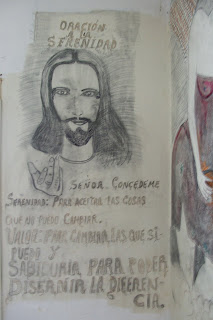 ORACIÓN
A LA
SERENIDAD
SEÑOR. CONCEDEME
SERENIDAD: PARA ACEPTAR LAS COSAS
QUE NO PUEDO CAMBIAR.
VALOR: PARA CAMBIAR LAS QUE SI.
PUEDO Y
SABIDURIA PARA PODER
LA DIFEREN-
CIA.